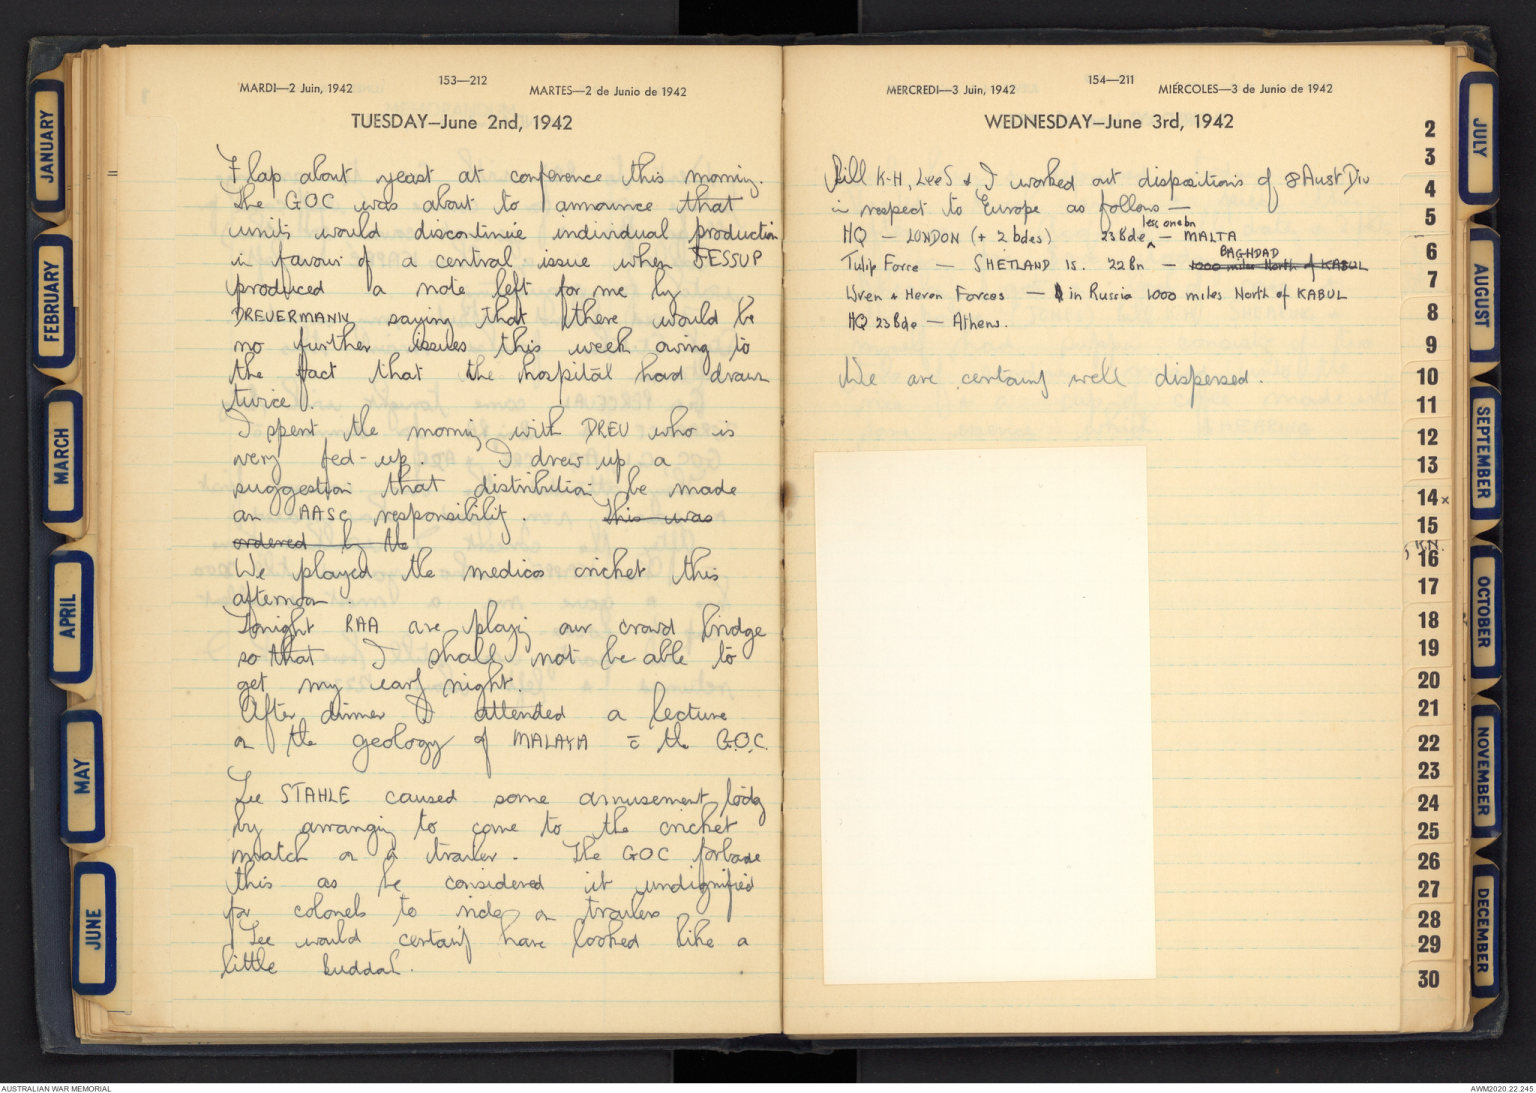 MARDI—2 Juin, 1942
153—212
MARTES—2 de Junio de 1942
TUESDAY—June 2nd, 1942
Flap about yeast at conference this morning.
The GOC was about to announce that
units would discontinue individual production
in favour of a central issue when JESSUP
produced a note left for me by
DREVERMANN saying that there would be
no further issues this week owing to
the fact that the hospital had drawn
twice.
I spent the morning with DREV who is
very fed-up. I drew up a
suggestion that distribution be made
an AASC responsibility. This was
ordered by the
We played the medicos cricket this
afternoon
Tonight RAA are playing our crowd bridge
so that I shall not be able to
get my early night.
After dinner I attended a lecture
on the geology of MALAYA c̄ the G.O.C.
Lee STAHLE caused some amusement today
by arranging to come to the cricket
match on a trailer. The GOC forbade
this as he considered it undignified
for colonels to ride on trailers
Lee would certainly have looked like a
little Buddah.
MERCREDI—3 Juin, 1942
154—211
MIÉRCOLES—3 de Junio de 1942
WEDNESDAY—June 3rd, 1942
Bill K-H, Lee S & I worked out dispositions of 8 Aust Div
in respect to Europe as follows —
less one bn
HQ — LONDON (+ 2 bdes) 23 Bde ^ — MALTA
BAGHDAD
Tulip Force — SHETLAND Is. 22 Bn — 1000 miles North of KABUL
Wren & Heron Forces — in Russia 1000 miles North of KABUL
HQ 23 Bde — Athens.
We are certainly well dispersed.
JANUARY
FEBRUARY
MARCH
APRIL
MAY
JUNE
2
3
4
5
6
7
8
9
10
11
12
13
14 x
15
16
17
18
19
20
21
22
23
24
25
26
27
28
29
30
JULY
AUGUST
SEPTEMBER
OCTOBER
NOVEMBER
DECEMBER
AUSTRALIAN WAR MEMORIAL
AWM2020.22.245